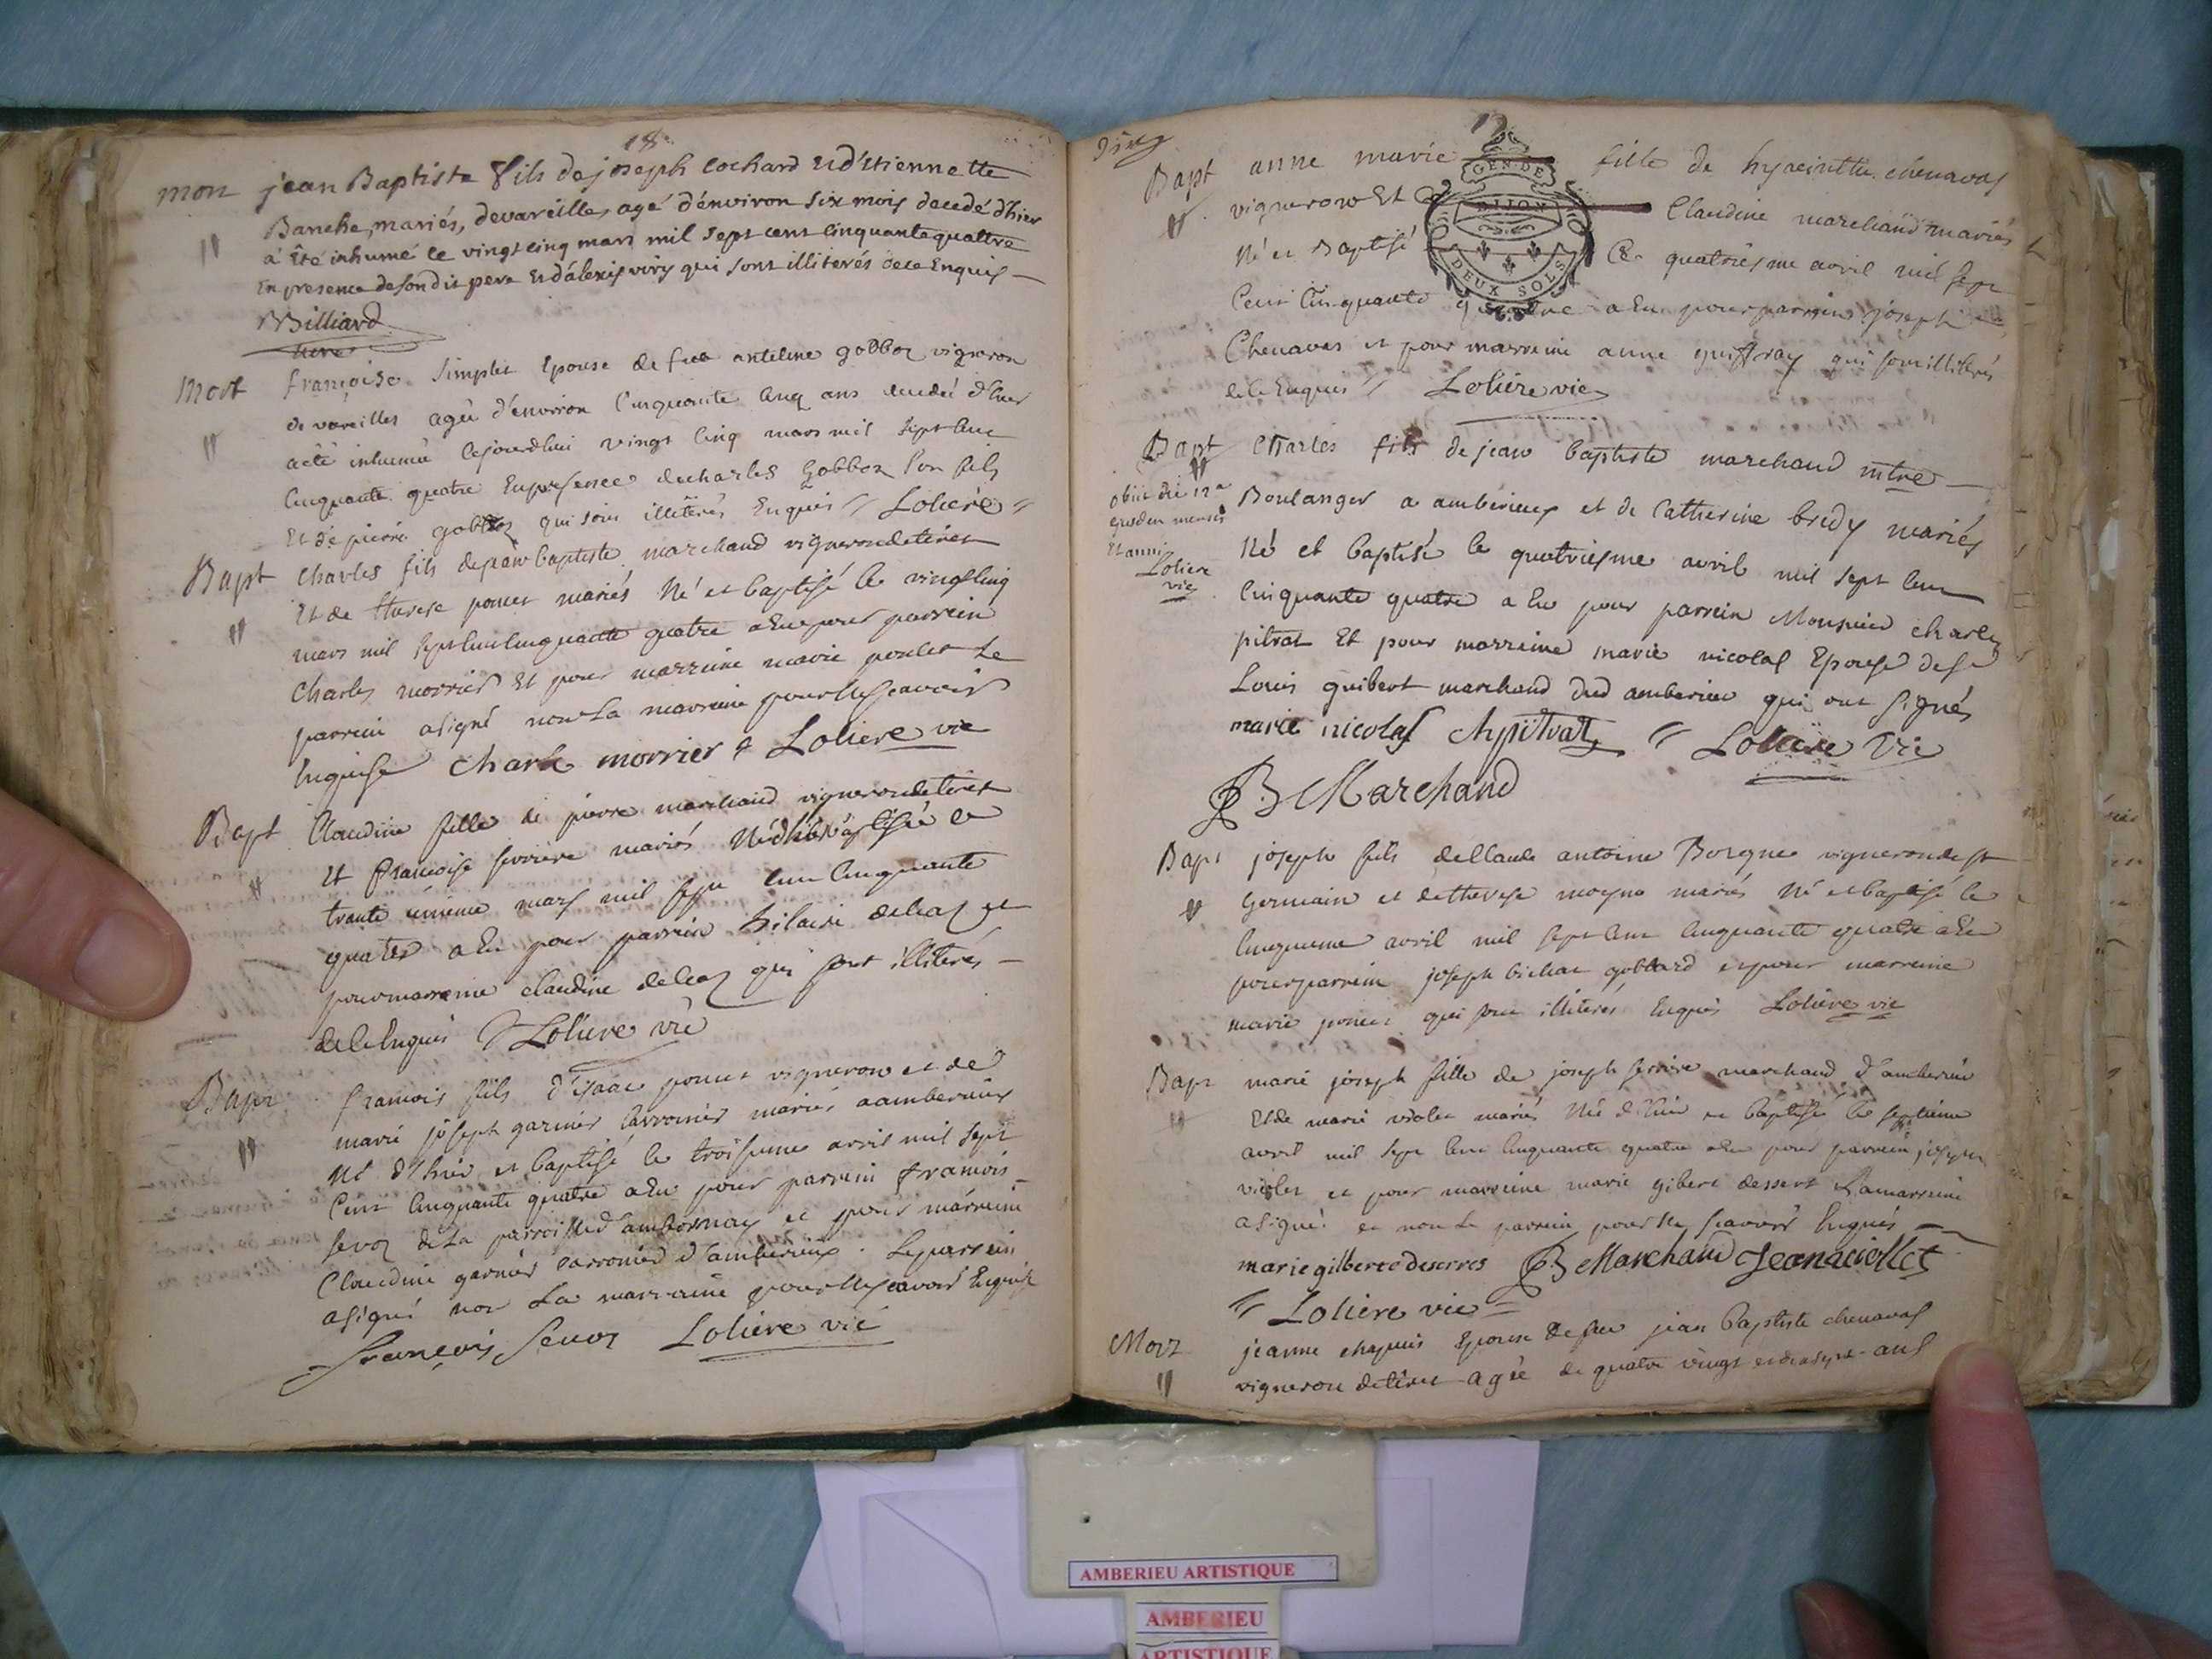 18
mort jean Baptiste fils de joseph cochard et d'Etiennette
Banche, mariés, devareilles, agé d'énviron six mois decedé d'hier
à été inhumé le vingt cinq mars mil sept cent cinquante quattre
En presence de son dit pere et d'alexis qui sont illiterés de ce Enquis
Billiard
mort françoise simplet Epouse de feu antelme gobboz vigneron
de vareilles agée d'environ Cinquante Cinq ans decedée d'hier
a été inhumée cejourdhui vingt Cinq mars mil sept Cent
Cinquante quatre En presence de charles gobboz son fils
Et de pierre gobboz qui sont illitérés Enquis Loliere
Bapt Charles fils de jean baptiste marchand vigneron de tiret
Et de therese poncet mariés Né et baptisé le vingt Cinq
mars mil sept Cent Cinquante quatre a Eu pour parrein
Charles morrier Et pour marreine marie poncet Le
parrein a signé non La marreine pour ne sçavoir
Enquise charle morrier Loliere vic
Bapt Claudine fille de pierre marchand vigneron de tiret
et françoise serriere mariés Née d'hier baptisée le
trante unieme mars mil sept Cent Cinquante
quatre a Eu pour parrein hilaire deleaz et
pour marreine claudine deleaz qui sont illiterés
de ce Enquis Loliere vic
Bapt francois fils d'isaac poncet vigneron et de
marie joseph garnier mariés a amberieux
Né d'hier et baptisé le troisieme avril mil sept
Cent Cinquante quatre a Eu pour parrein francois
sevoz de La parroisse d'ambornay et pour marreine
Claudine garnier d'amberieux. Le parrein
a signé non La marreine pour ne sçavoir Enquise
françois sevoz Loliere vic
Dix
Bapt anne marie fille de hyacinthe chenavas
GEN. DE DIJON
DEUX SOLS
vigneron Et Claudine marchand mariés
Né et Baptisé Ce quatriesme avril mil sept
Cent Cinquante quatre a Eu pour parrein joseph
Chenavas et pour marreine anne guiffray qui sont illitérés
de ce Enquis Loliere vic
Bapt Charles fils de jean baptiste marchand mtre
Boulanger a amberieux et de Catherine bredy mariés
obiit die 12a
ejusdem mensis
Et anni
Loliere
vic
Né et baptisé le quatriesme avril mil sept Cent
Cinquante quatre a Eu pour parrein Monsieur charles
pitrat Et pour marreine marie nicolas Epouse de sr
Louis guibert marchand dud amberieu qui ont signés
marie nicolas ch pitrat Loliere vic
JB Marchand
Bapt joseph fils de Claude antoine Borgne vigneron de st
Germain et de therese moyne mariés Né et baptisé le
Cinquieme avril mil sept Cent Cinquante quatre a Eu
pour parrein joseph bichat gobbard et pour marreine
marie poncet qui sont illiterés Enquis Loliere vic
Bapt marie joseph fille de joseph serriere marchand d'amberieu
Et de marie violet mariés Née d'hier et baptisée le septieme
avril mil sept Cent Cinquante quatre a Eu pour parrein joseph
violet et pour marreine marie gibert La marreine
a signé et non Le parrein pour ne sçavoir Enquis
marie gilberte deserres JB Marchand
Loliere vic
Mort jeanne chapuis Epouse de feu jean baptiste chenavas
vigneron de tiret agée de quatre vingt et dix sept ans
AMBERIEU ARTISTIQUE
AMBERIEU
ARTISTIQUE